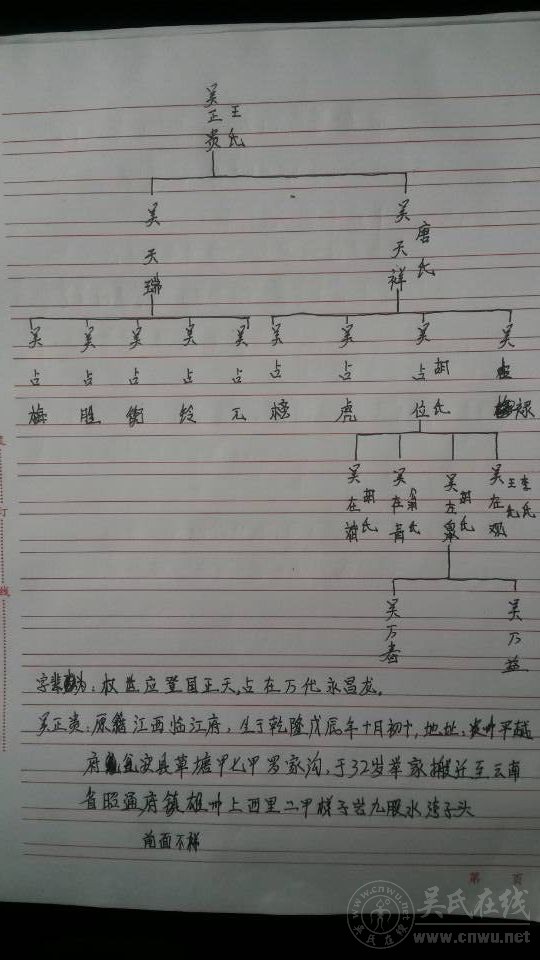 吴正贵 王氏
吴天瑞
吴天祥 唐氏
吴占梅
吴占胜
吴占衡
吴占铃
吴占元
吴占榜
吴占虎
吴占位 胡氏
吴占禄
吴在 胡氏
吴在 氏
吴在 胡氏
吴在观 王氏 李氏
吴万
吴万益
字辈为：权 应登国正天占在万代永昌龙。
吴正贵：原籍江西临江府，生于乾隆戊辰年十月初十，地址：贵州平越
府瓮安县草塘甲七甲罗家沟，于32岁举家搬迁至云南
省昭通府镇雄州上西里二甲梯子岩九股水湾子头
前面不祥
订
线
第 页
吴氏在线
www.cnwu.net
吴氏在线